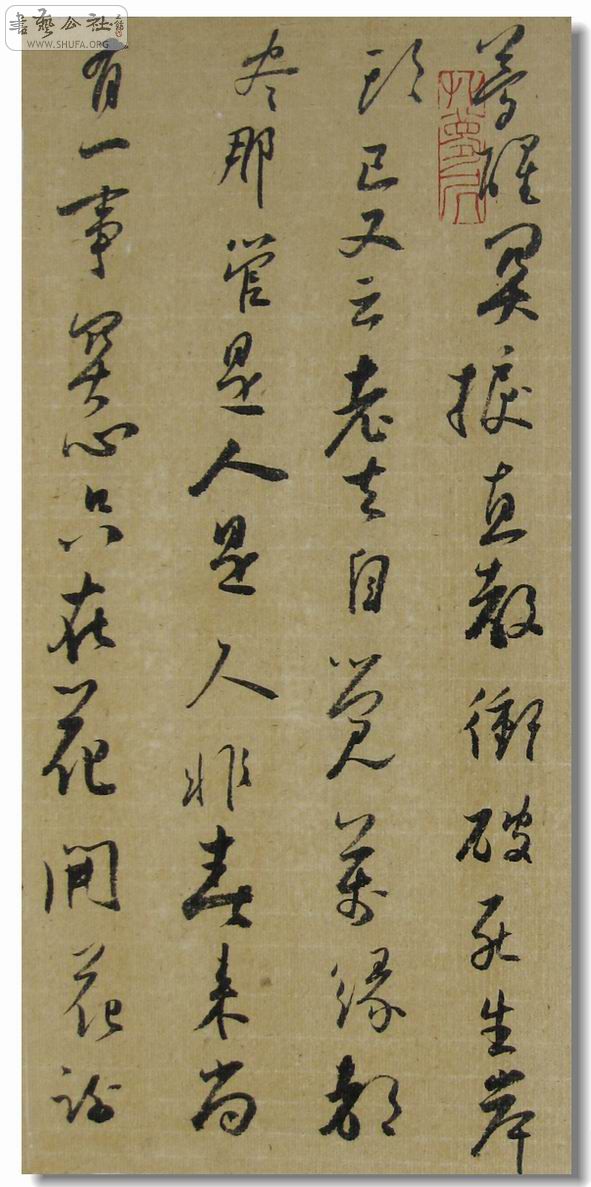 書藝公社
WWW.SHUFA.ORG
夢醒直教衝破死生岸
頭已又云老去自覺萬緣都
盡那管是人是人非春来尚
有一事関心只在花開花謝